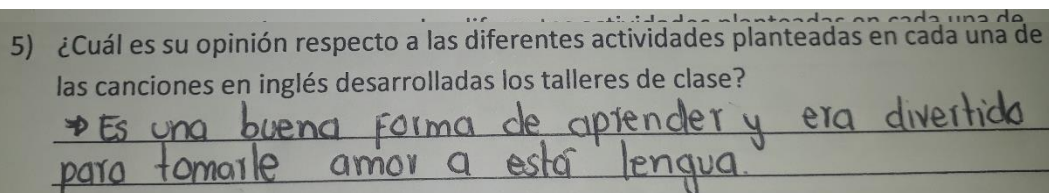 5) ¿Cuál es su opinión respecto a las diferentes actividades planteadas en cada una de
las canciones en inglés desarrolladas los talleres de clase?
⇒ Es una buena forma de aprender y era divertido
para tomarle amor a esta lengua.